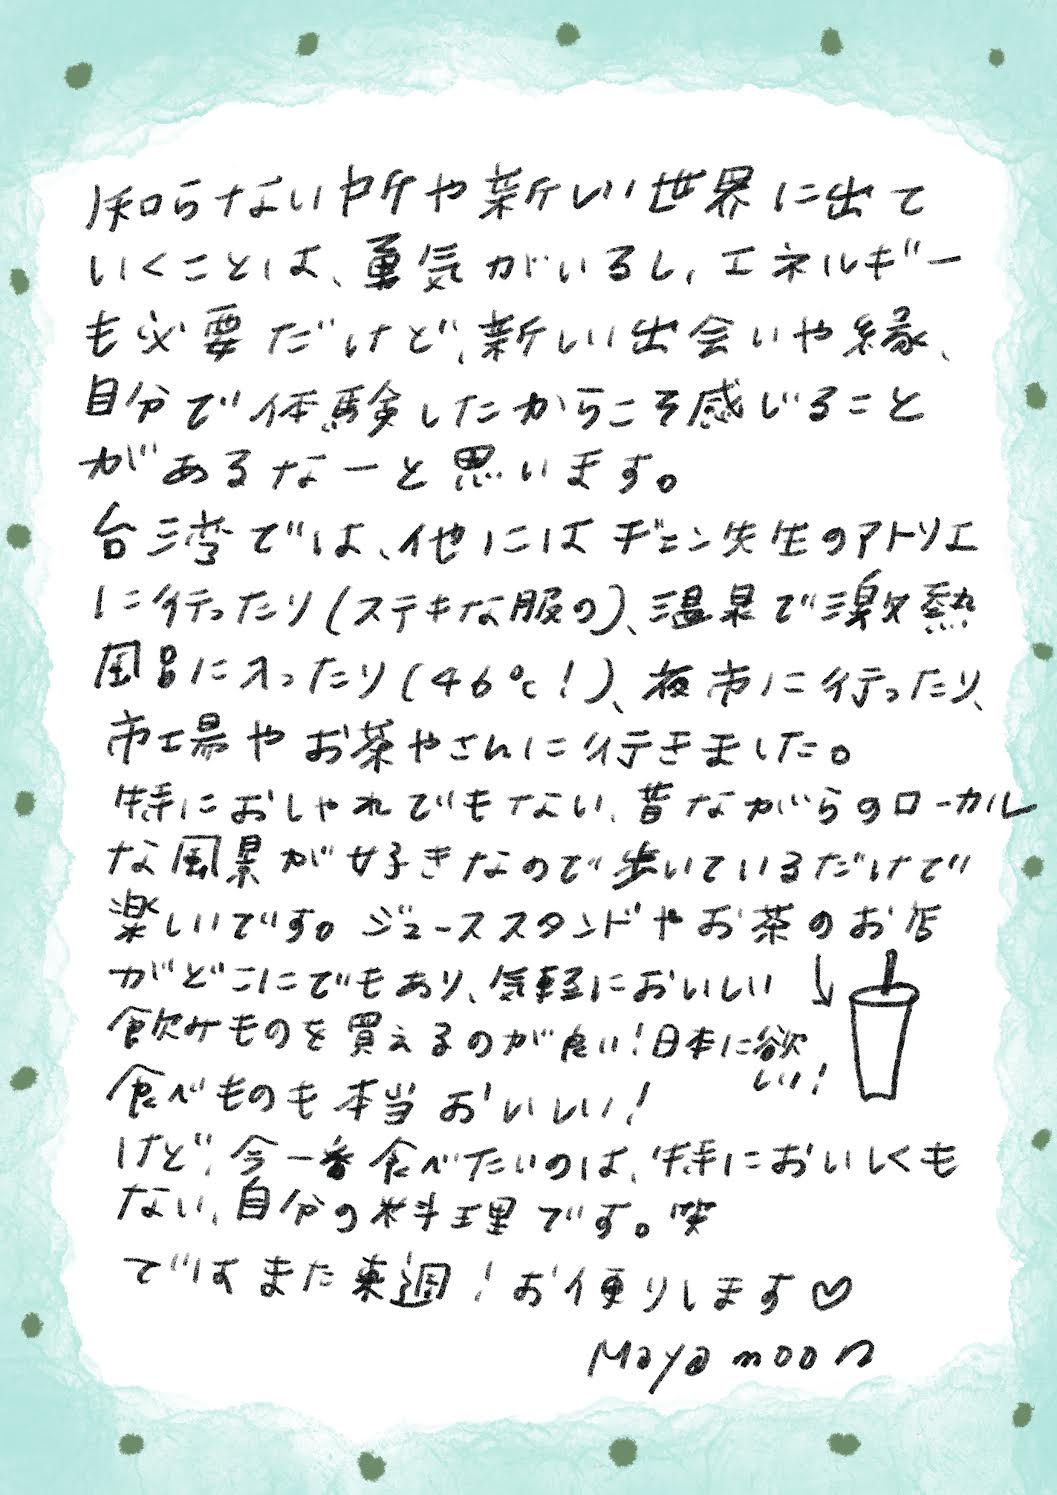 知らない所や新しい世界に出て
いくことは、勇気がいるし、エネルギー
も必要だけど、新しい出会いや縁、
自分で体験したからこそ感じること
があるなーと思います。
台湾では、他にはヂェン先生のアトリエ
に行ったり(ステキな服の)、温泉で激熱
風呂に入ったり(46℃!)、夜市に行ったり、
市場やお茶やさんに行きました。
特におしゃれでもない、昔ながらのローカル
な風景が好きなので歩いているだけで
楽しいです。ジューススタンドやお茶のお店
がどこにでもあり、気軽においしい
飲みものを買えるのが良い!日本に欲
しい!
食べものも本当おいしい!
けど、今一番食べたいのは、特においしくも
ない、自分の料理です。笑
ではまた来週!お便りします♡
Maya moon